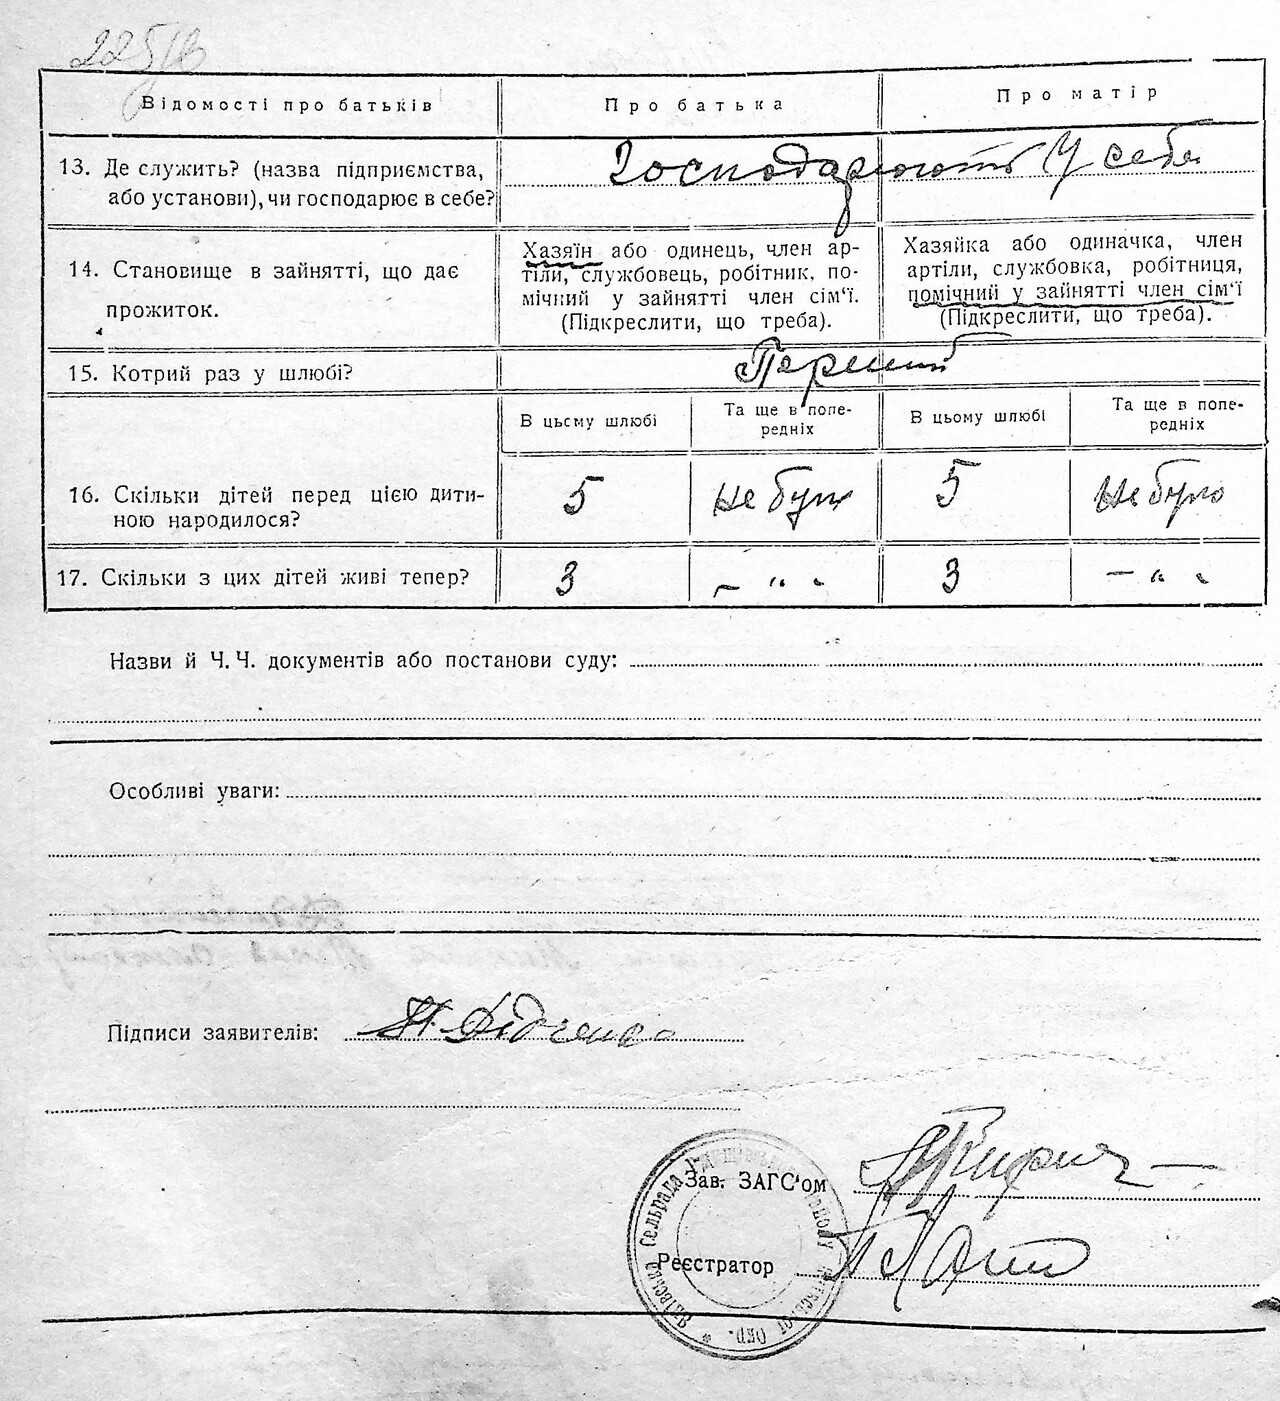 225/в
Відомості про батьків
Про батька
Про матір
13. Де служить? (назва підприємства,
або установи), чи господарює в себе?
Господарюють у себе
14. Становище в зайнятті, що дає
прожиток.
Хазяїн або одинець, член ар-
тіли, службовець, робітник, по-
мічний у зайнятті член сім'ї.
(Підкреслити, що треба).
Хазяйка або одиначка, член
артіли, службовка, робітниця,
помічний у зайнятті член сім'ї
(Підкреслити, що треба).
15. Котрий раз у шлюбі?
Перший
В цьому шлюбі
Та ще в попе-
редніх
В цьому шлюбі
Та ще в попе-
редніх
16. Скільки дітей перед цією дити-
ною народилося?
5
Не було
5
Не було
17. Скільки з цих дітей живі тепер?
3
– " "
3
– " "
Назви й Ч. Ч. документів або постанови суду:
Особливі уваги:
Підписи заявителів:
Дідченко
Зав. ЗАГС'ом
Реєстратор
Сельрада